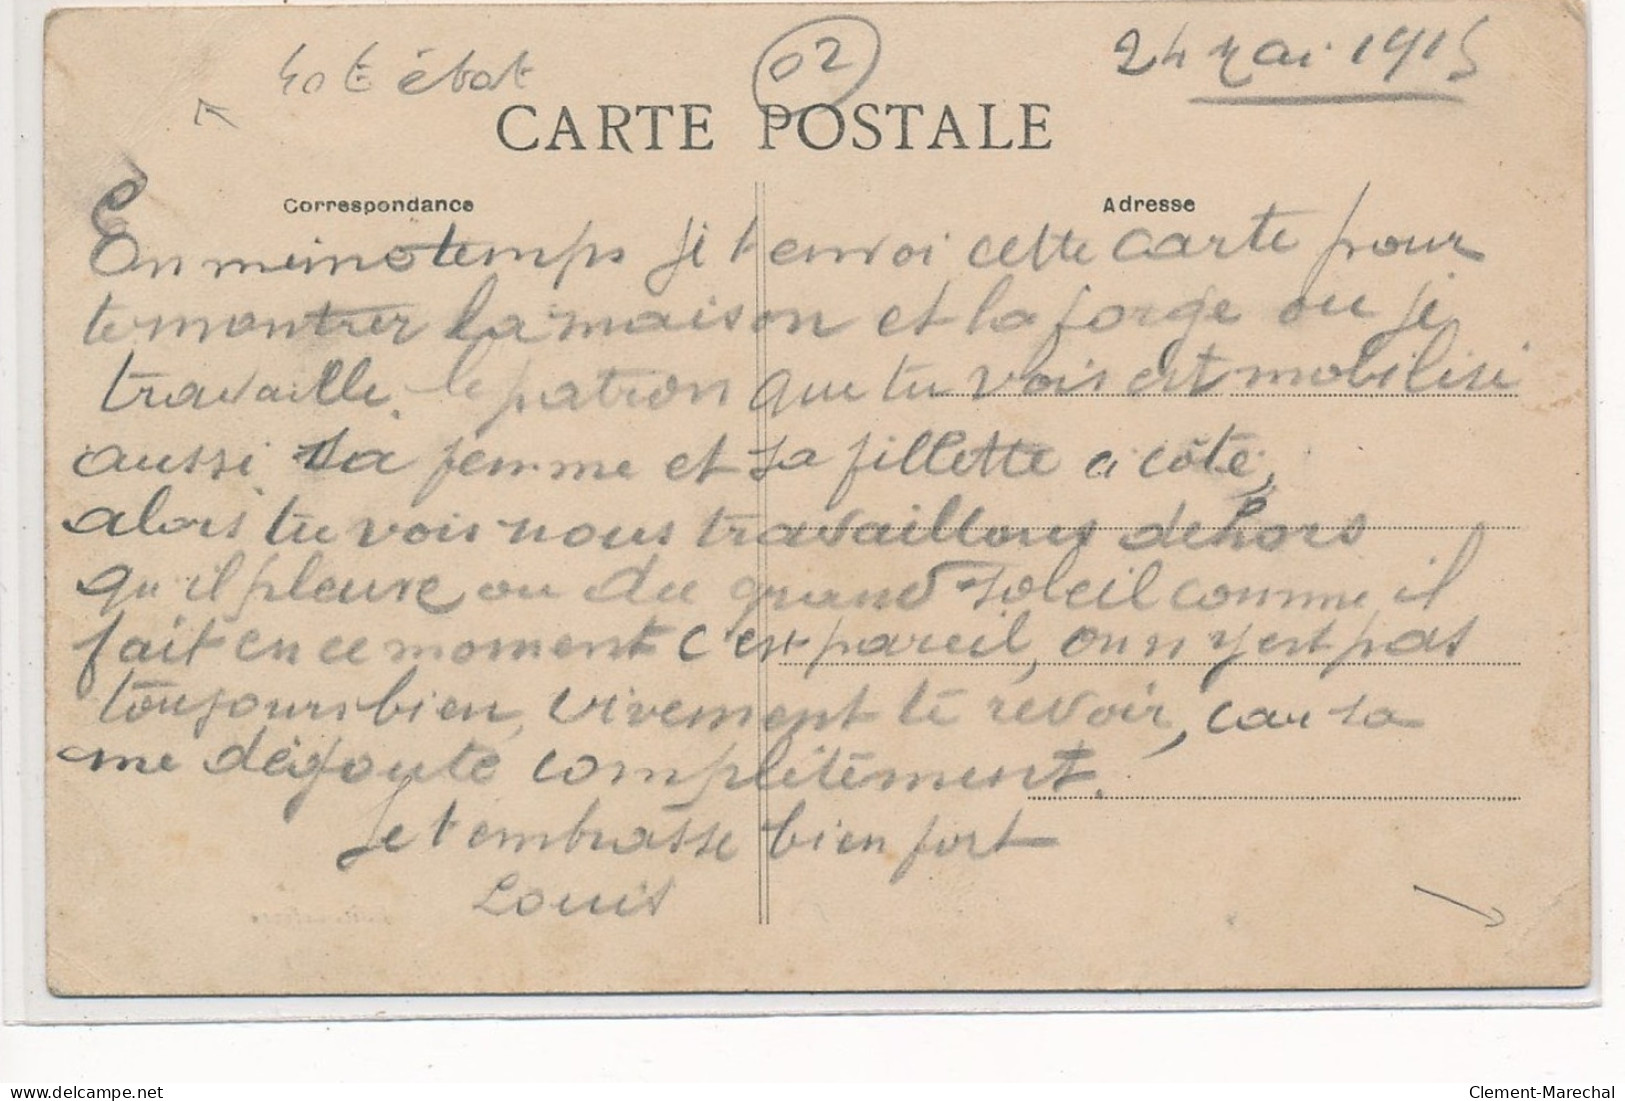 40 € état
02
24 mai 1915
CARTE POSTALE
Correspondance
Adresse
En meme temps je t envoi cette carte pour
te montrer la maison et la forge ou je
travaille. le patron que tu vois est mobilisé
aussi sa femme et sa fillette a côté,
alors tu vois nous travaillons dehors
qu'il pleuve ou du grand soleil comme il
fait en ce moment c'est pareil, on n'y est pas
toujours bien, vivement te revoir, car sa
me dégoute complètement.
Je t embrasse bien fort
Louis
Clement-Marechal